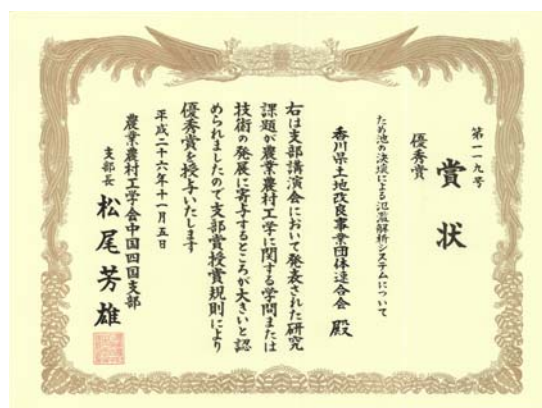 第一一九号
賞状
優秀賞
ため池の決壊による氾濫解析システムについて
香川県土地改良事業団体連合会 殿
右は支部講演会において発表された研究
課題が農業農村工学に関する学問または
技術の発展に寄与するところが大きいと認
められましたので支部賞授賞規則により
優秀賞を授与いたします
平成二十六年十一月五日
農業農村工学会中国四国支部
支部長 松尾芳雄